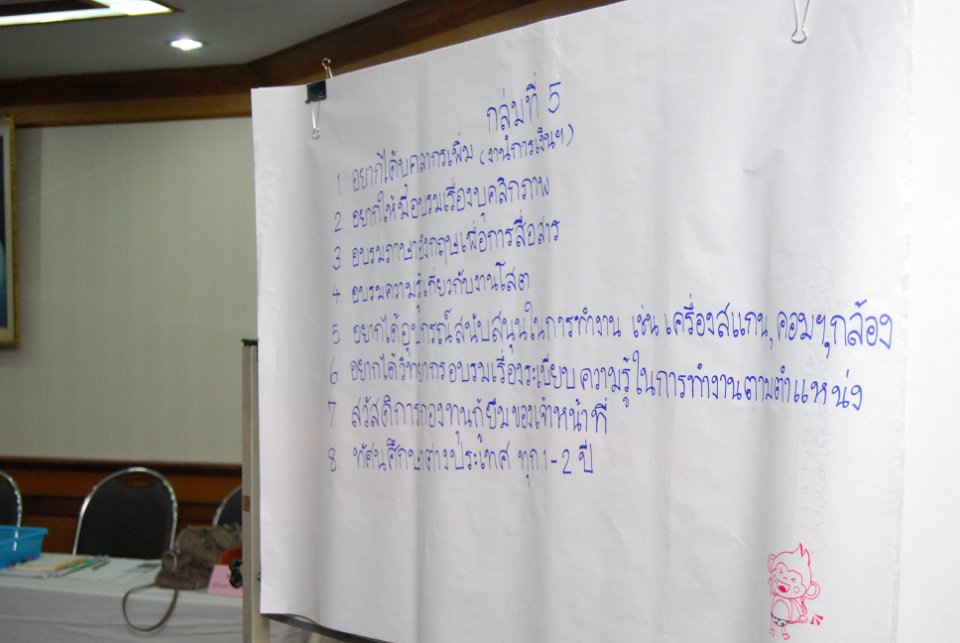 กลุ่มที่ 5
1. อยากได้บุคลากรเพิ่ม (งานการเงินฯ)
2. อยากให้มีอบรมเรื่องบุคลิกภาพ
3. อบรมภาษาอังกฤษเพื่อการสื่อสาร
4. อบรมความรู้เกี่ยวกับงานโสต
5. อยากได้อุปกรณ์สนับสนุนในการทำงาน เช่น เครื่องสแกน, คอมฯ, กล้อง
6. อยากได้วิทยากรอบรมเรื่องระเบียบความรู้ในการทำงานตามตำแหน่ง
7. สวัสดิการกองทุนกู้ยืมของเจ้าหน้าที่
8. ทัศนศึกษาต่างประเทศ ทุก 1-2 ปี